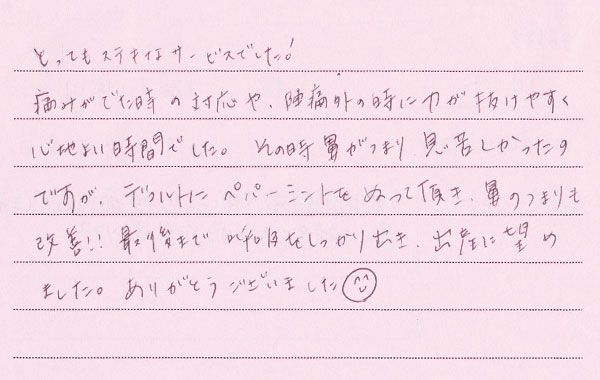 とってもステキなサービスでした!
痛みがでた時の対応や、陣痛外の時に力が抜けやすく
心地よい時間でした。その時鼻がつまり息苦しかったの
ですが、デコルテにペパーミントをぬって頂き、鼻のつまりも
改善!! 最後まで呼吸をしっかりでき、出産に望め
ました。ありがとうございました